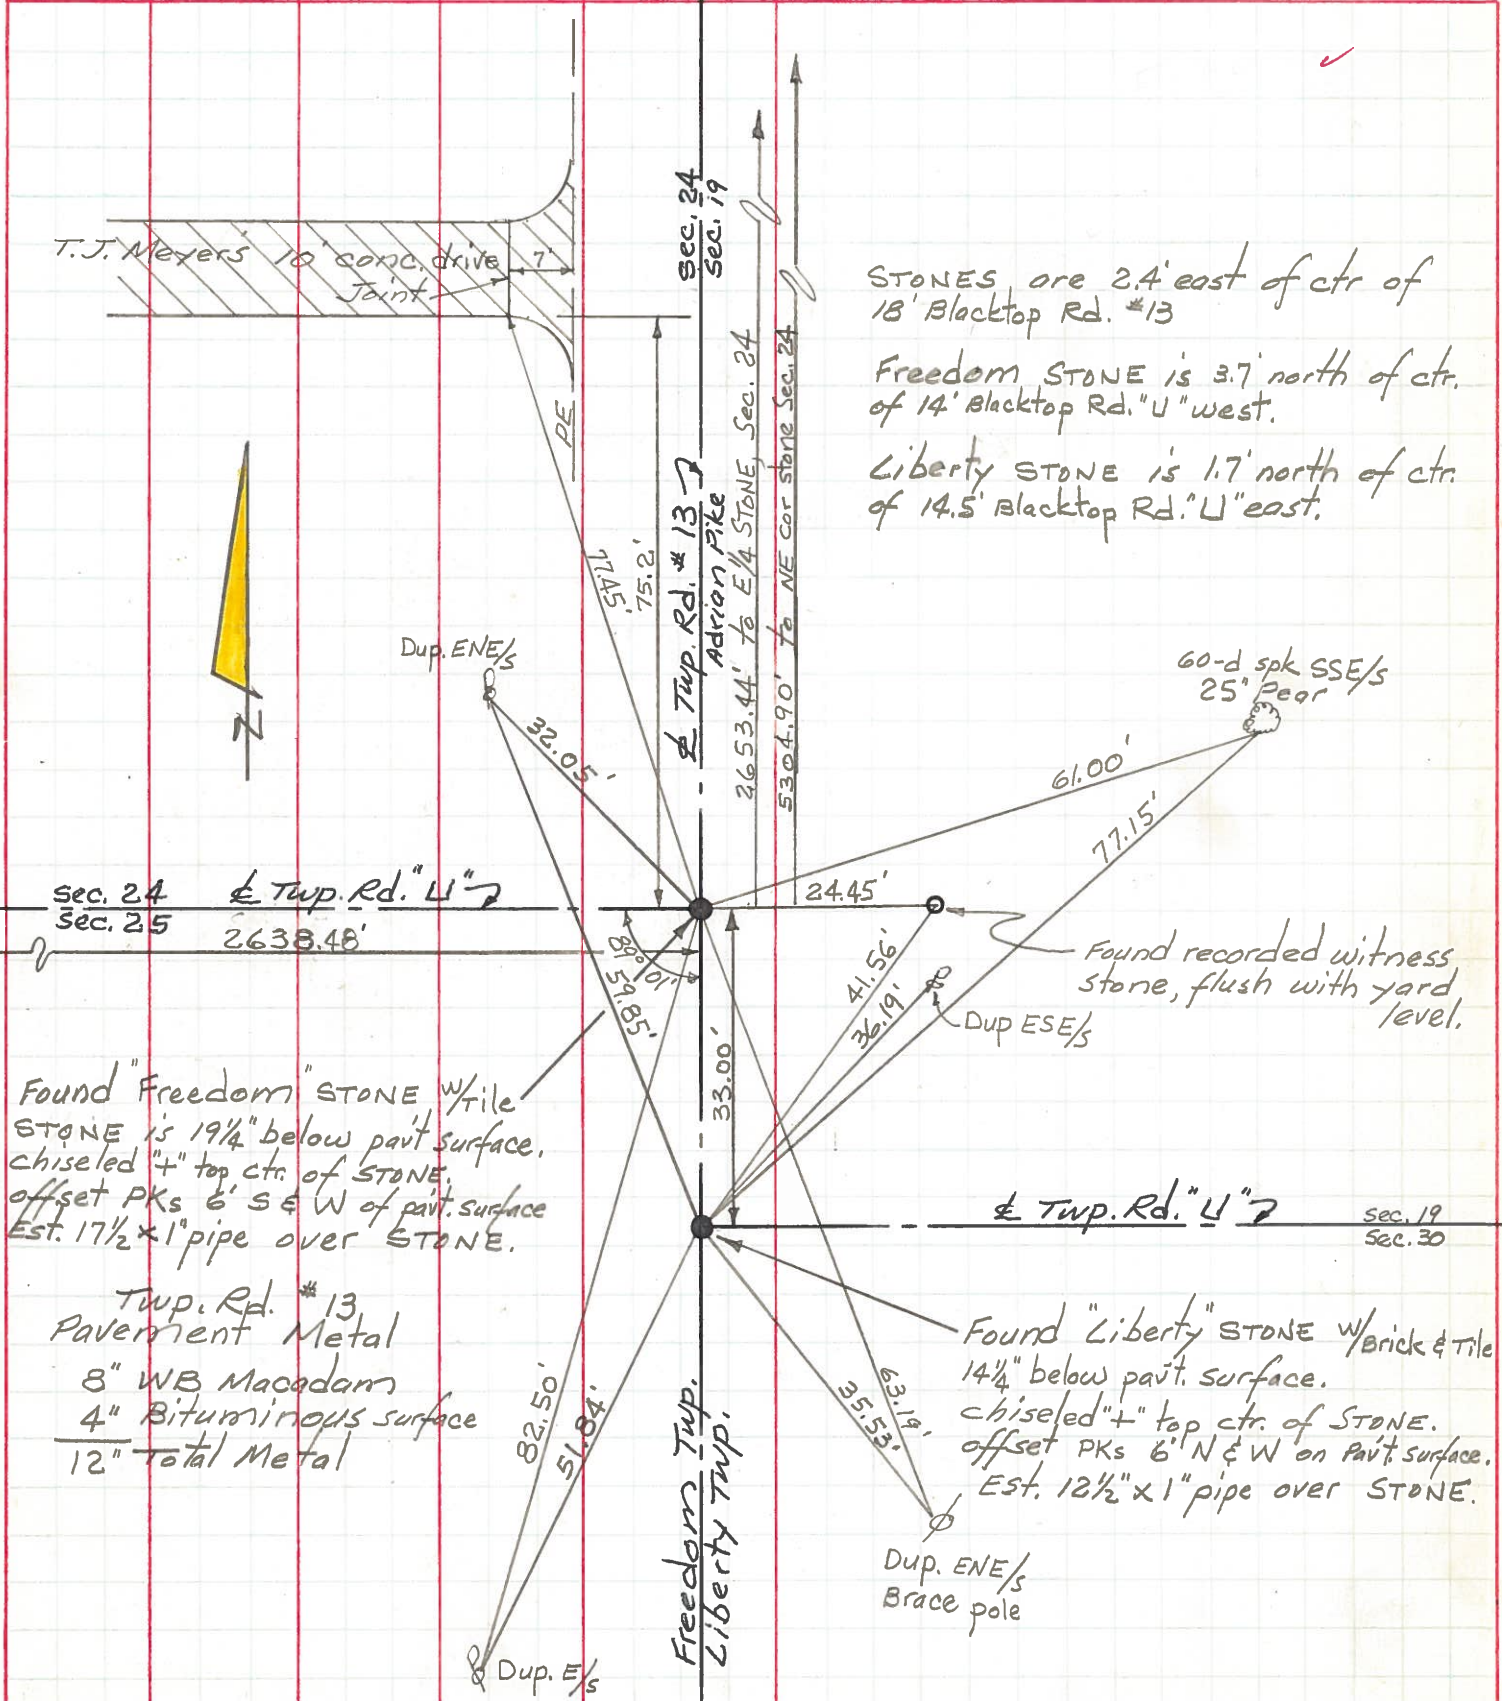 sec. 24
sec. 19
T.J. Meyers' 10' conc. drive
7'
Joint
STONES are 2.4' east of ctr of
18' Blacktop Rd. #13
Freedom STONE is 3.7' north of ctr.
of 14' Blacktop Rd. "U" west.
Liberty STONE is 1.7' north of ctr.
of 14.5' Blacktop Rd. "U" east.
PE
77.45'
75.2'
℄ Twp. Rd. #13
Adrian Pike
2653.44' to E1/4 STONE, Sec. 24
5304.90' to NE cor stone Sec. 24
N
Dup. ENE/s
32.05'
60-d spk SSE/s
25" Pear
61.00'
77.15'
sec. 24
sec. 25
℄ Twp. Rd. "U"
2638.48'
24.45'
89° 01'
59.85'
41.56'
36.19'
33.00'
Found recorded witness
stone, flush with yard
level.
Dup ESE/s
Found "Freedom" STONE w/Tile
STONE is 19 1/4" below pav't surface.
chiseled "+" top ctr. of STONE.
offset PKs 6' S & W of pav't. surface
Est. 17 1/2 x 1" pipe over STONE.
℄ Twp. Rd. "U"
sec. 19
sec. 30
Twp. Rd. #13
Pavement Metal
8" WB Macadam
4" Bituminous surface
12" Total Metal
Found "Liberty" STONE w/Brick & Tile
14 1/4" below pav't. surface.
chiseled "+" top ctr. of STONE.
offset PKs 6' N & W on Pav't. surface.
Est. 12 1/2" x 1" pipe over STONE.
82.50'
51.84'
35.53'
63.19'
Freedom Twp.
Liberty Twp.
Dup. ENE/s
Brace pole
Dup. E/s